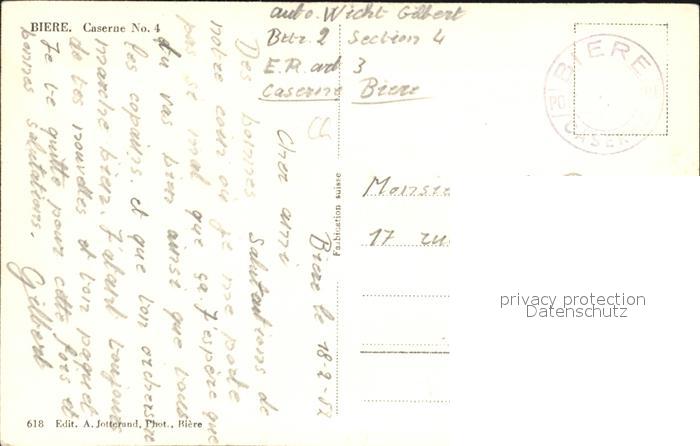 BIERE. Caserne No. 4
auto. Wicht Gilbert
Bttr. 2 Section 4
E.R. art 3
Caserne Biere
BIERE
CASER
Bière le 18-2-52
Cher ami
Des bonnes salutations de
notre coin où je me porte
pas si mal que ça. J'espère que
tu vas bien ainsi que tous
les copains. et que ton orchestre
marche bien. J'attend toujours
de tes nouvelles et ton paquet
Je te quitte pour cette fois et
bonnes salutations.
Gilbert
Fabrication suisse
Monsie
17 ru
privacy protection
Datenschutz
618 Edit. A. Jotterand, Phot., Bière